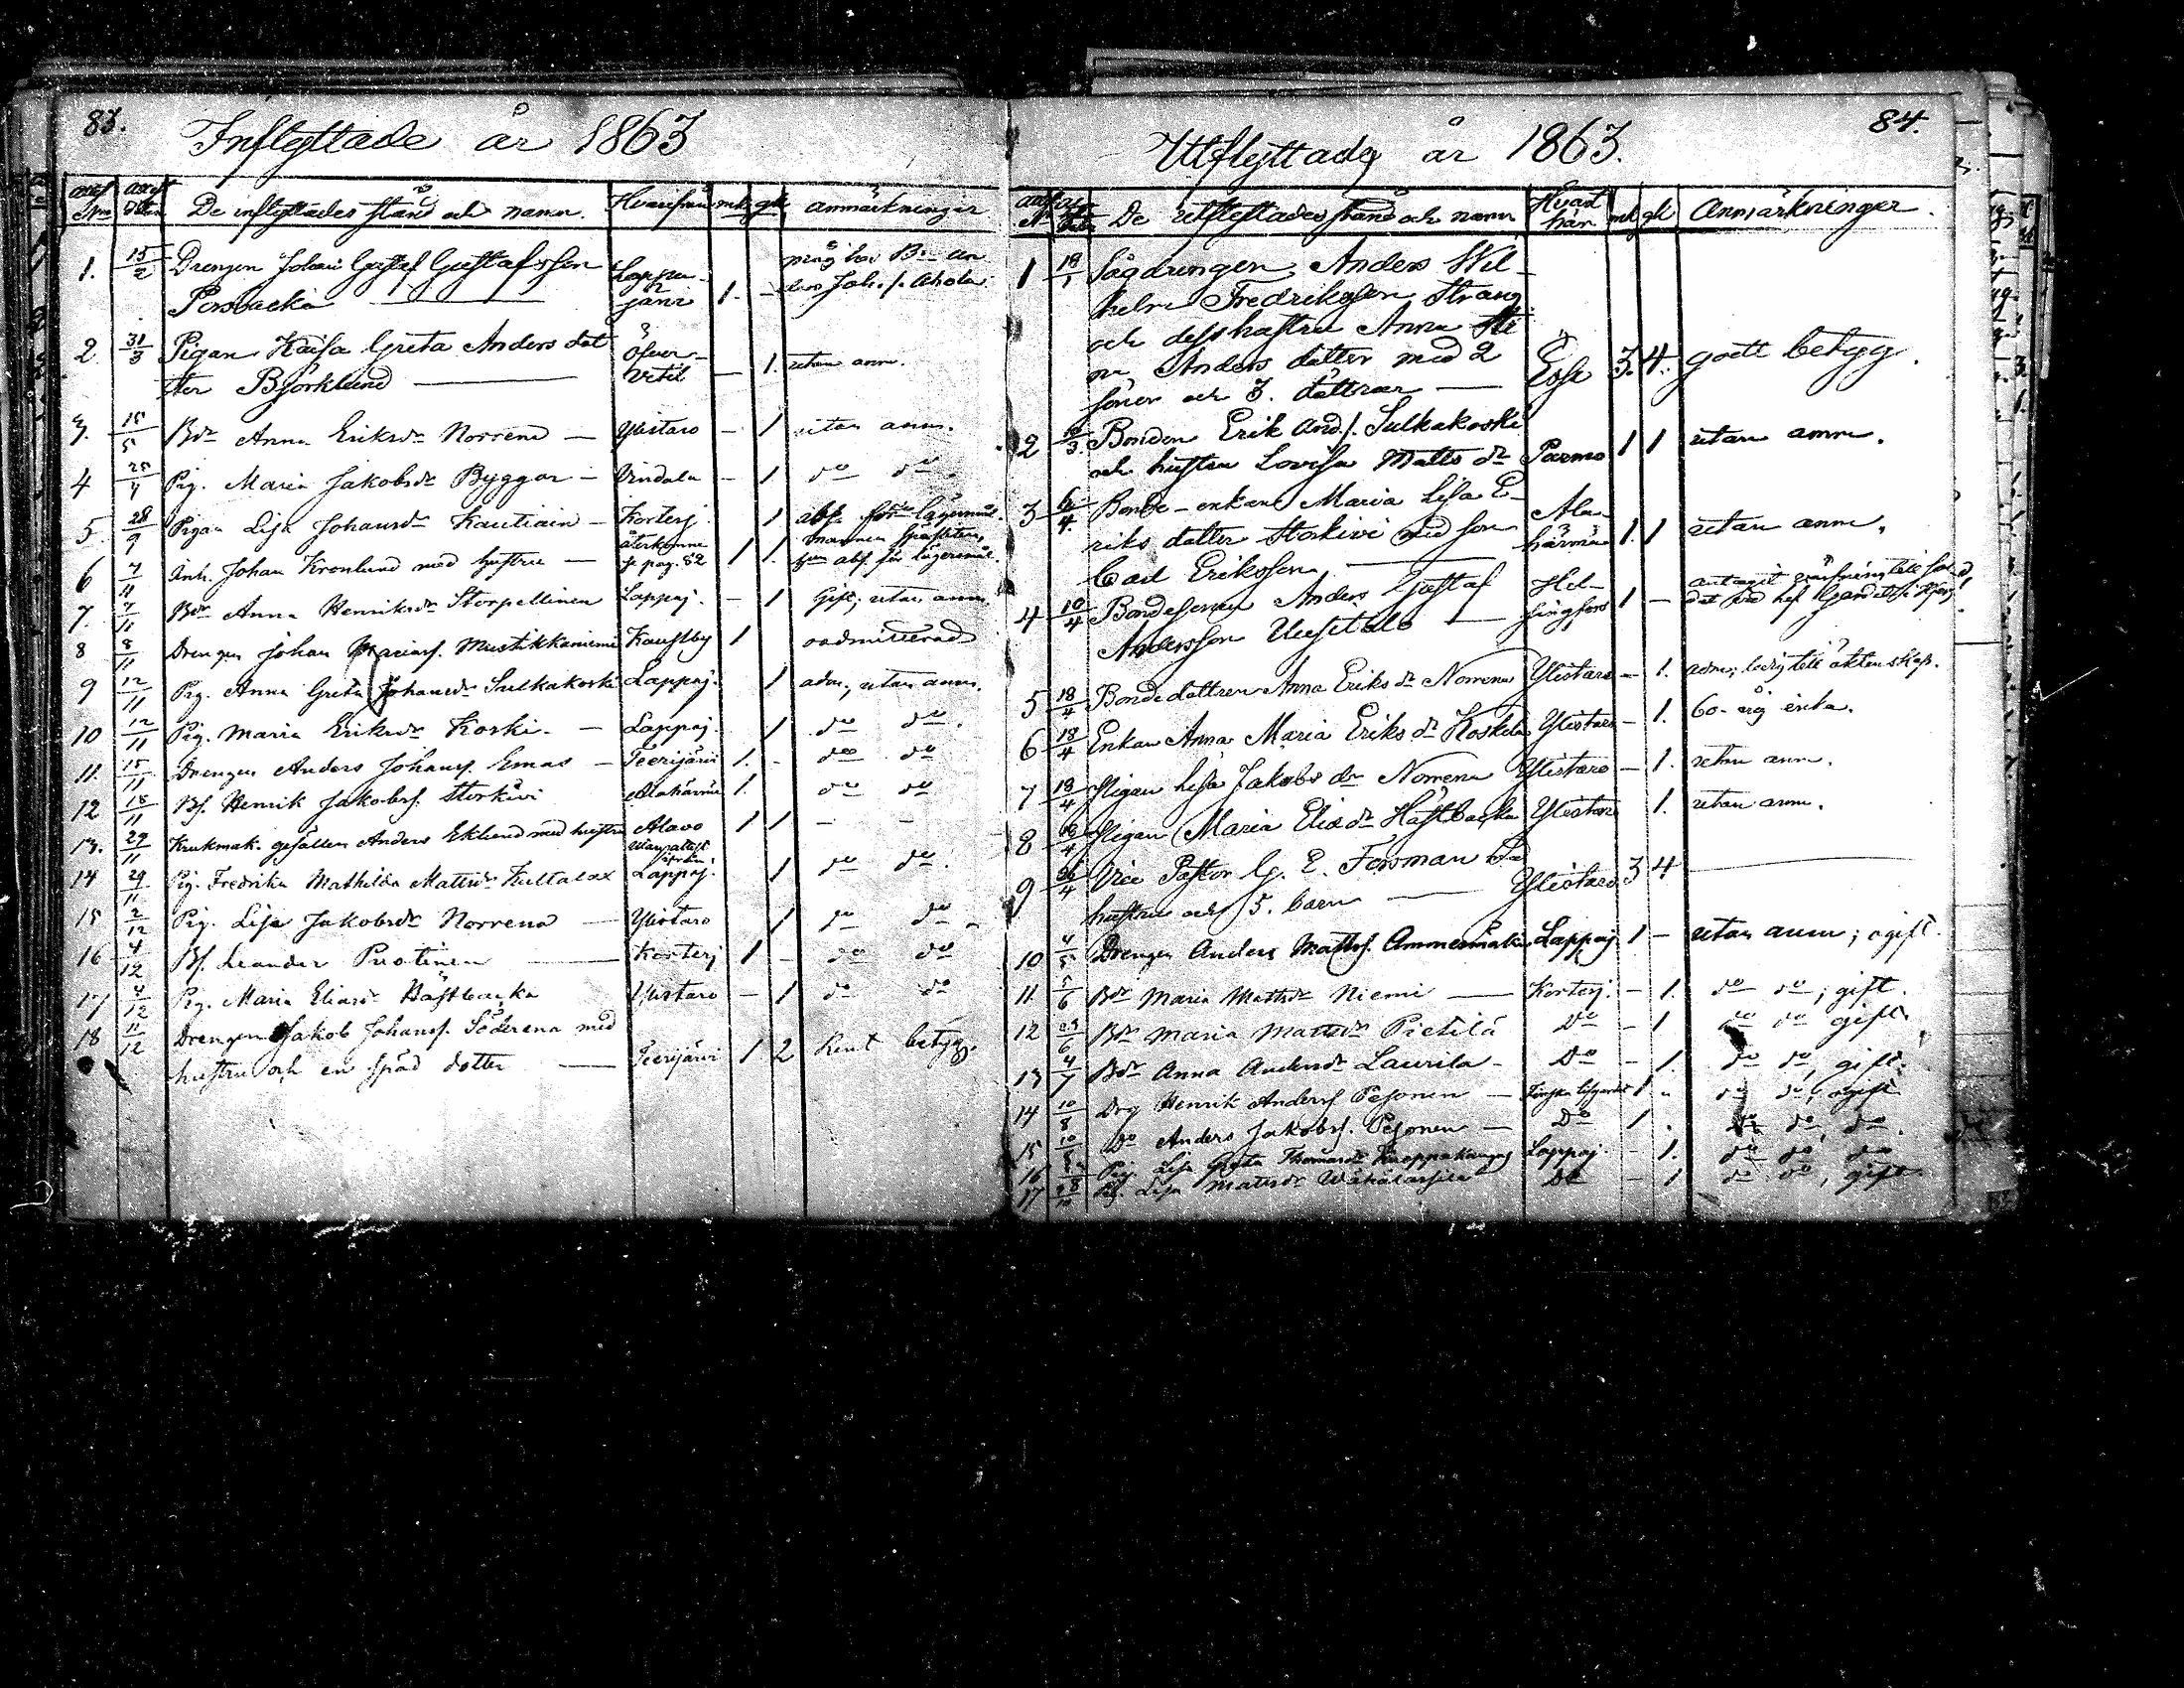 83.
Inflyttade år 1863
De inflyttades stånd och namn. Hvarifrån mk. qk anmärkningar
1. 15/2 Drengen Johan Gustaf Gustafsson Lappa-
Persbacka järvi 1. -
2 31/3 Pigan Kaisa Greta Anders dot Öfver-
ter Björklund Vetil — 1. utan anm.
3. 15/5 Bdr Anna Eriksdr Norrena — Ylistaro — 1 utan anm.
4 Pig. Maria Jakobsdr Byggar — Vindala — 1 do do
5 28/9 Pigan Lisa Johansdr Kautiain — Kortesj. 1
6 7/11 Inh. Johan Kronlund med hustru — återkomne
se pag. 82 1 1.
7. 7/11 Bdr Anna Henriksdr Storpellinen Lappaj. — 1 Gift; utan anm.
8 8/11 Drengen Johan Mariasf. Mustikkaniemi Kaustby 1 oadmitterad
9 12/11 Pig. Anna Greta Johansdr Sulkakoski Lappaj. 1 adm., utan anm.
10 12/11 Pig. Maria Eriksdr Koski. — Lappaj. 1 do do.
11. 15/11 Drengen Anders Johansf. Emas — Teerijärvi 1. - do do
12 15/11 Bf. Henrik Jakobsf. Storkivi Alahärmä 1. do do
13. 29/11 Krukmak. gesällen Anders Eklund med hustru Alavo 1 1 — —
14 29/11 Pig. Fredrika Mathilda Mattsdr Kultalax Lappaj. 1 do do.
15 2/12 Pig. Lisa Jakobsdr Norrena — Ylistaro 1 do do
16 4/12 Bf. Leander Puotinen — Kortesj 1 - do do
17 4/12 Pig. Maria Eliasdr Hästbacka Ylistaro — 1 do do
18 11/12 Drengen Jakob Johansf. Söderena med
hustru och en späd dotter — Teerijärvi 1 2 Rent betyg.
84.
Utflyttade år 1863.
De utflyttades stånd och namn Hvart
här mk qk Anmärkningar.
1 18/1 Sågdrengen Anders Wil-
helm Fredriksson Strang
och dess hustru Anna Sti
na Anders dotter med 2
söner och 3. döttrar — Esse 3. 4. godt betyg.
2 Bonden Erik And.f. Sulkakoski
och hustru Lovisa Matts dr Purmo 1 1 utan anm.
3 6/4 Bonde-enkan Maria Lisa E- Ala-
riks dotter Storkivi med son härmä 1. 1 utan anm.
Carl Eriksson —
4 10/4 Bondesonen Anders Gustaf Hel-
Andersson Uusitalo — singfors 1 —
5 18/4 Bondedottren Anna Eriks dr Norrena Ylistaro — 1. adm; ledig till äktenskap.
6 18/4 Enkan Anna Maria Eriks dr Koskela Ylistaro — 1. 60-årig enka.
7 18/4 Pigan Lisa Jakobs dr Norrena Ylistaro — 1. utan anm.
8 18/4 Pigan Maria Elias dr Hästbacka Ylistaro 1. utan anm.
9 26/4 Vice Pastor G. E. Forsman
hustru och 5. barn — Ylistaro 3 4 —
10 4/5 Drengen Anders Mattsf. Ammesmäki Lappaj 1 — utan anm; ogift.
11. 5/6 Bdr Maria Mattsdr Niemi — Kortesj. — 1. do do; gift.
12 29/6 Bdr Maria Mattsdr Pietilä Do — 1 do do gift.
13 4/7 Bdr Anna Andersdr Laurila — Do — 1. do do, gift.
14 10/8 Drg Henrik Andersf Pesonen — 1 do do, ogift
15 10/8 Do Anders Jakobsf. Pesonen — Do 1. do do.
16 Pig. Lisa Greta Thomasdr Knaappakangas Lappaj. — 1. do do do
17 28/10 Pig. Lisa Mattsdr Do — 1 do do, gift